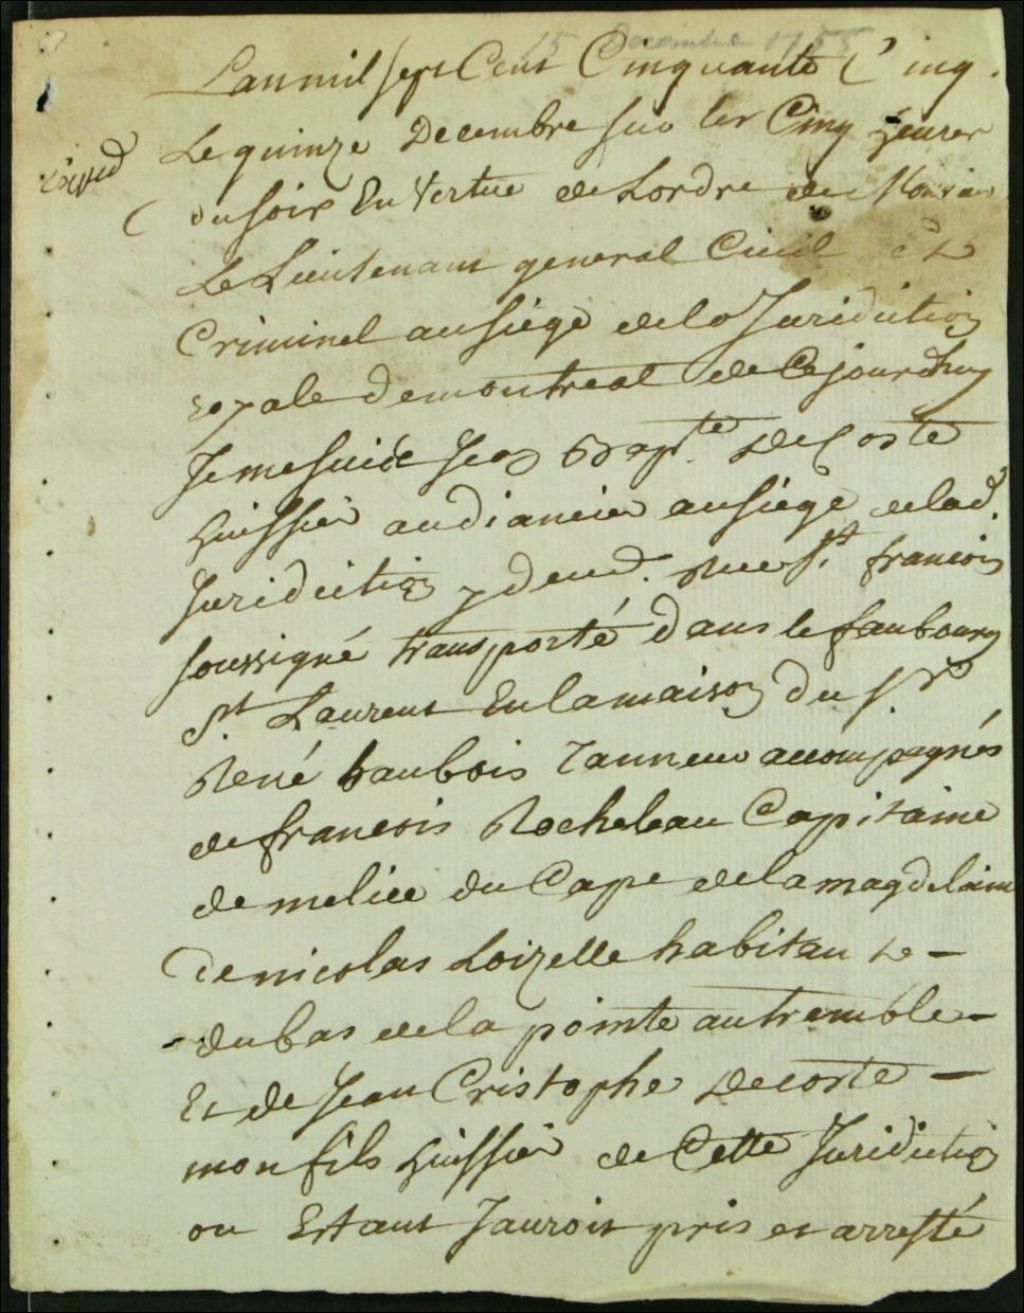 15 Decembre 1755
Lan mil sept Cent Cinquante Cinq
Le quinze Decembre sur les Cinq heures
du soir En Vertue de Lordre de
Le Lieutenant general Civil et
Criminel au siege de la Juridiction
royale de montreal de Cejourdhuy
Je me suis Jean Bapte Decoste
huissier audiancier au siege de lad.
Juridiction y demt. Rue St. francois
soussigné transporté dans le faubourg
St Laurent En la maison du Sr
René haubois Tanneur accompagnés
de francois Rocheleau Capitaine
de melice du Cape de la magdelaine
De nicolas Loizelle habitant de -
du bas de la pointe au tremble -
Et de Jean Cristophe Decoste -
mon fils huissier de Cette Juridiction
ou Estant Jaurois pris et arresté